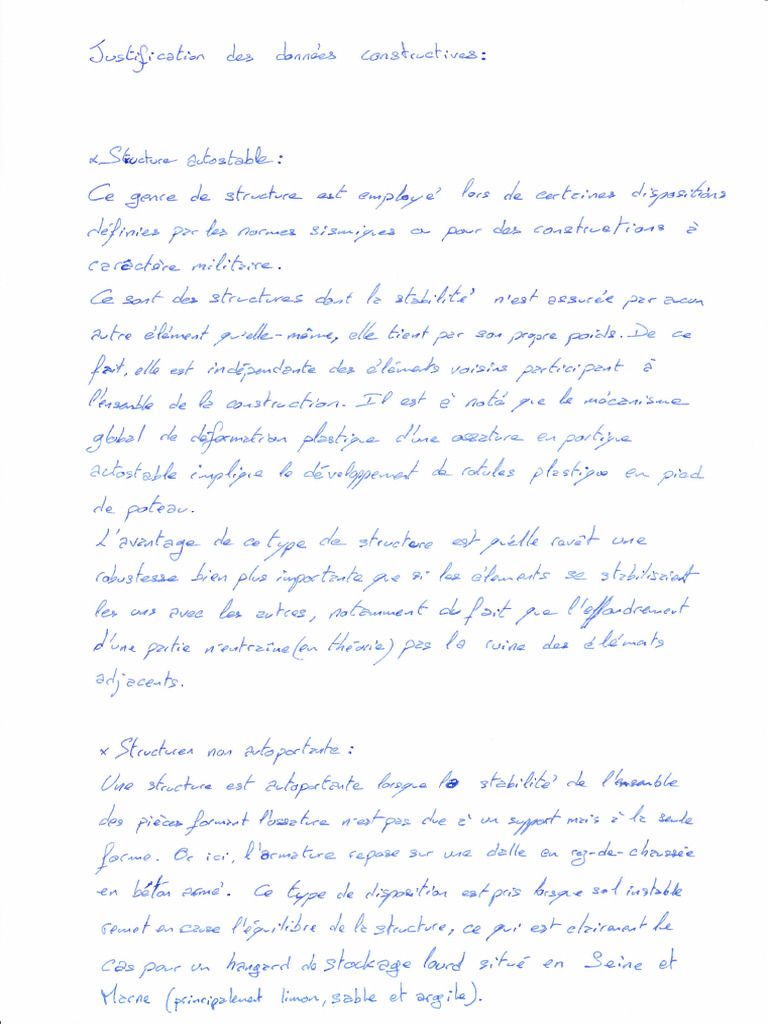 Justification des données constructives :
x Structure autostable :
Ce genre de structure est employé lors de certaines dispositions
définies par les normes sismiques ou pour des constructions à
caractère militaire.
Ce sont des structures dont la stabilité n'est assurée par aucun
autre élément qu'elle-même, elle tient par son propre poids. De ce
fait, elle est indépendante des éléments voisins participant à
l'ensemble de la construction. Il est à noté que le mécanisme
global de déformation plastique d'une ossature en portique
autostable implique le développement de rotules plastique en pied
de poteau.
L'avantage de ce type de structure est qu'elle revêt une
robustesse bien plus importante que si les élements se stabilisaient
les uns avec les autres, notamment du fait que l'effondrement
d'une partie n'entraîne (en théorie) pas la ruine des éléments
adjacents.
x Structuren non autoportante :
Une structure est autoportante lorsque la stabilité de l'ensemble
des pièces formant l'ossature n'est pas due à un support mais à la seule
forme. Or ici, l'armature repose sur une dalle en rez-de-chaussée
en béton armé. Ce type de disposition est pris lorsque sol instable
remet en cause l'équilibre de la structure, ce qui est clairement le
cas pour un hangard de stockage lourd situé en Seine et
Marne (principalement limon, sable et argile).